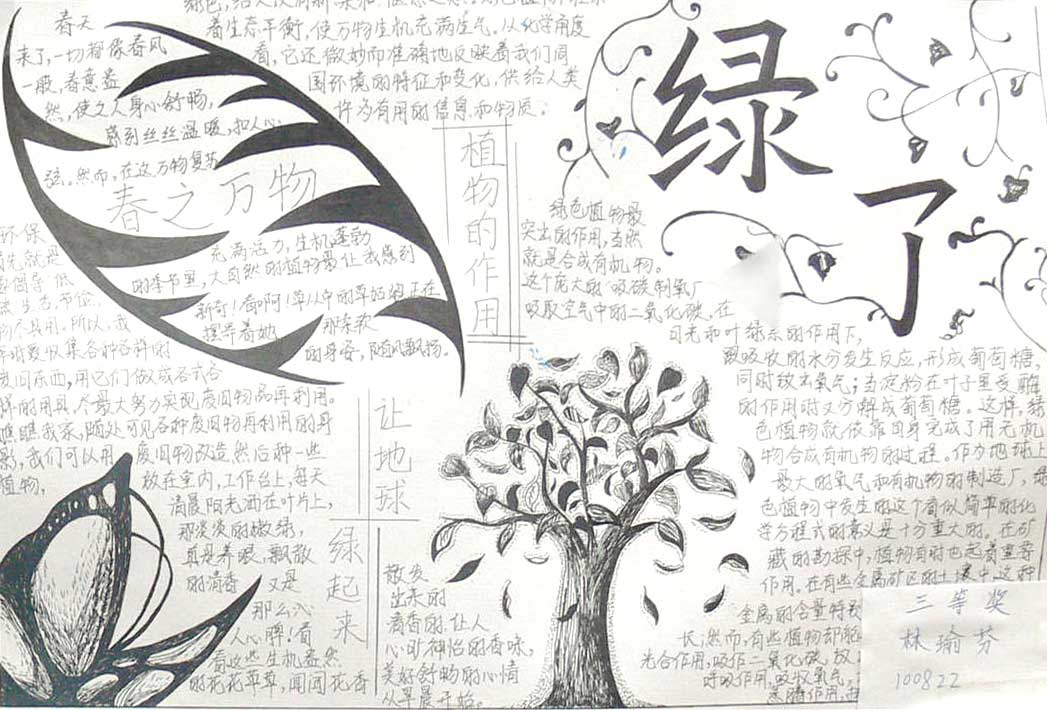 绿了
春天
来了,一切都像春风
一般,春意盎
然,使之人身心舒畅,
感到丝丝温暖,扣人心
弦。然而,在这万物复苏
春之万物
充满活力,生机蓬勃
的季节里,大自然的植物最让我感到
新奇!看啊!草丛中的草正在
摆弄着她那柔软
的身姿,随风飘扬。
着生态平衡,使万物生机充满生气。从化学角度
看,它还微妙而准确地反映着我们周
围环境的特征和变化,供给人类
许多有用的信息和物质。
植物的作用
绿色植物最
突出的作用,当然
就是合成有机物。
这个庞大的吸碳制氧厂
吸取空气中的二氧化碳,在
日光和叶绿素的作用下,
跟吸收的水分发生反应,形成葡萄糖,
同时放出氧气;当淀粉在叶子里受酶
的作用时又分解成葡萄糖。这样,绿
色植物就依靠自身完成了用无机
物合成有机物的过程。作为地球上
最大的氧气和有机物的制造厂,绿
色植物中发生的这个看似简单的化
学方程式的意义是十分重大的。在矿
藏的勘探中,植物有时也起着重要
作用。在有些金属矿区的土壤中,这种
金属的含量特别
长;然而,有些植物却能
光合作用,吸收二氧化碳,放
呼吸作用,吸收氧气,
蒸腾作用,
让地球
绿起来
环保
首先就是
要倡导低
的具用。所以,我
平时最收集各种各样的
废旧东西,用它们做成各式各
样的用具,尽最大努力实现废旧物品再利用。
瞧瞧我家,随处可见各种废旧物再利用的身
影,我们可以用废旧物改造,然后种一些
植物,放在室内,工作台上,每天
清晨阳光洒在叶片上,
那淡淡的嫩绿,
真是养眼,飘散
的清香又是
那么沁
人心脾!看
着这些生机盎然
的花花草草,闻闻花香
散发
出来的
清香的,让人
心旷神怡的香味,
美好舒畅的心情
从早晨开始。
三等奖
林瑜芬
100822